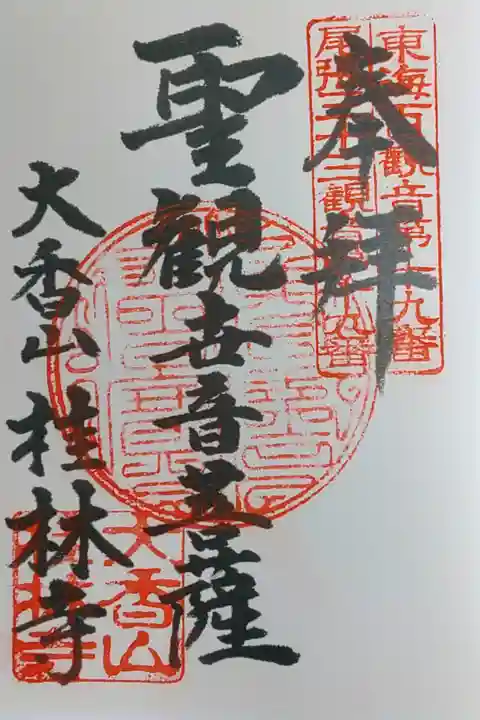 東海百觀音第十九番
尾張三十三観音第十九番
奉拝
聖観世音菩薩
大香山桂林寺
大香山
桂林寺